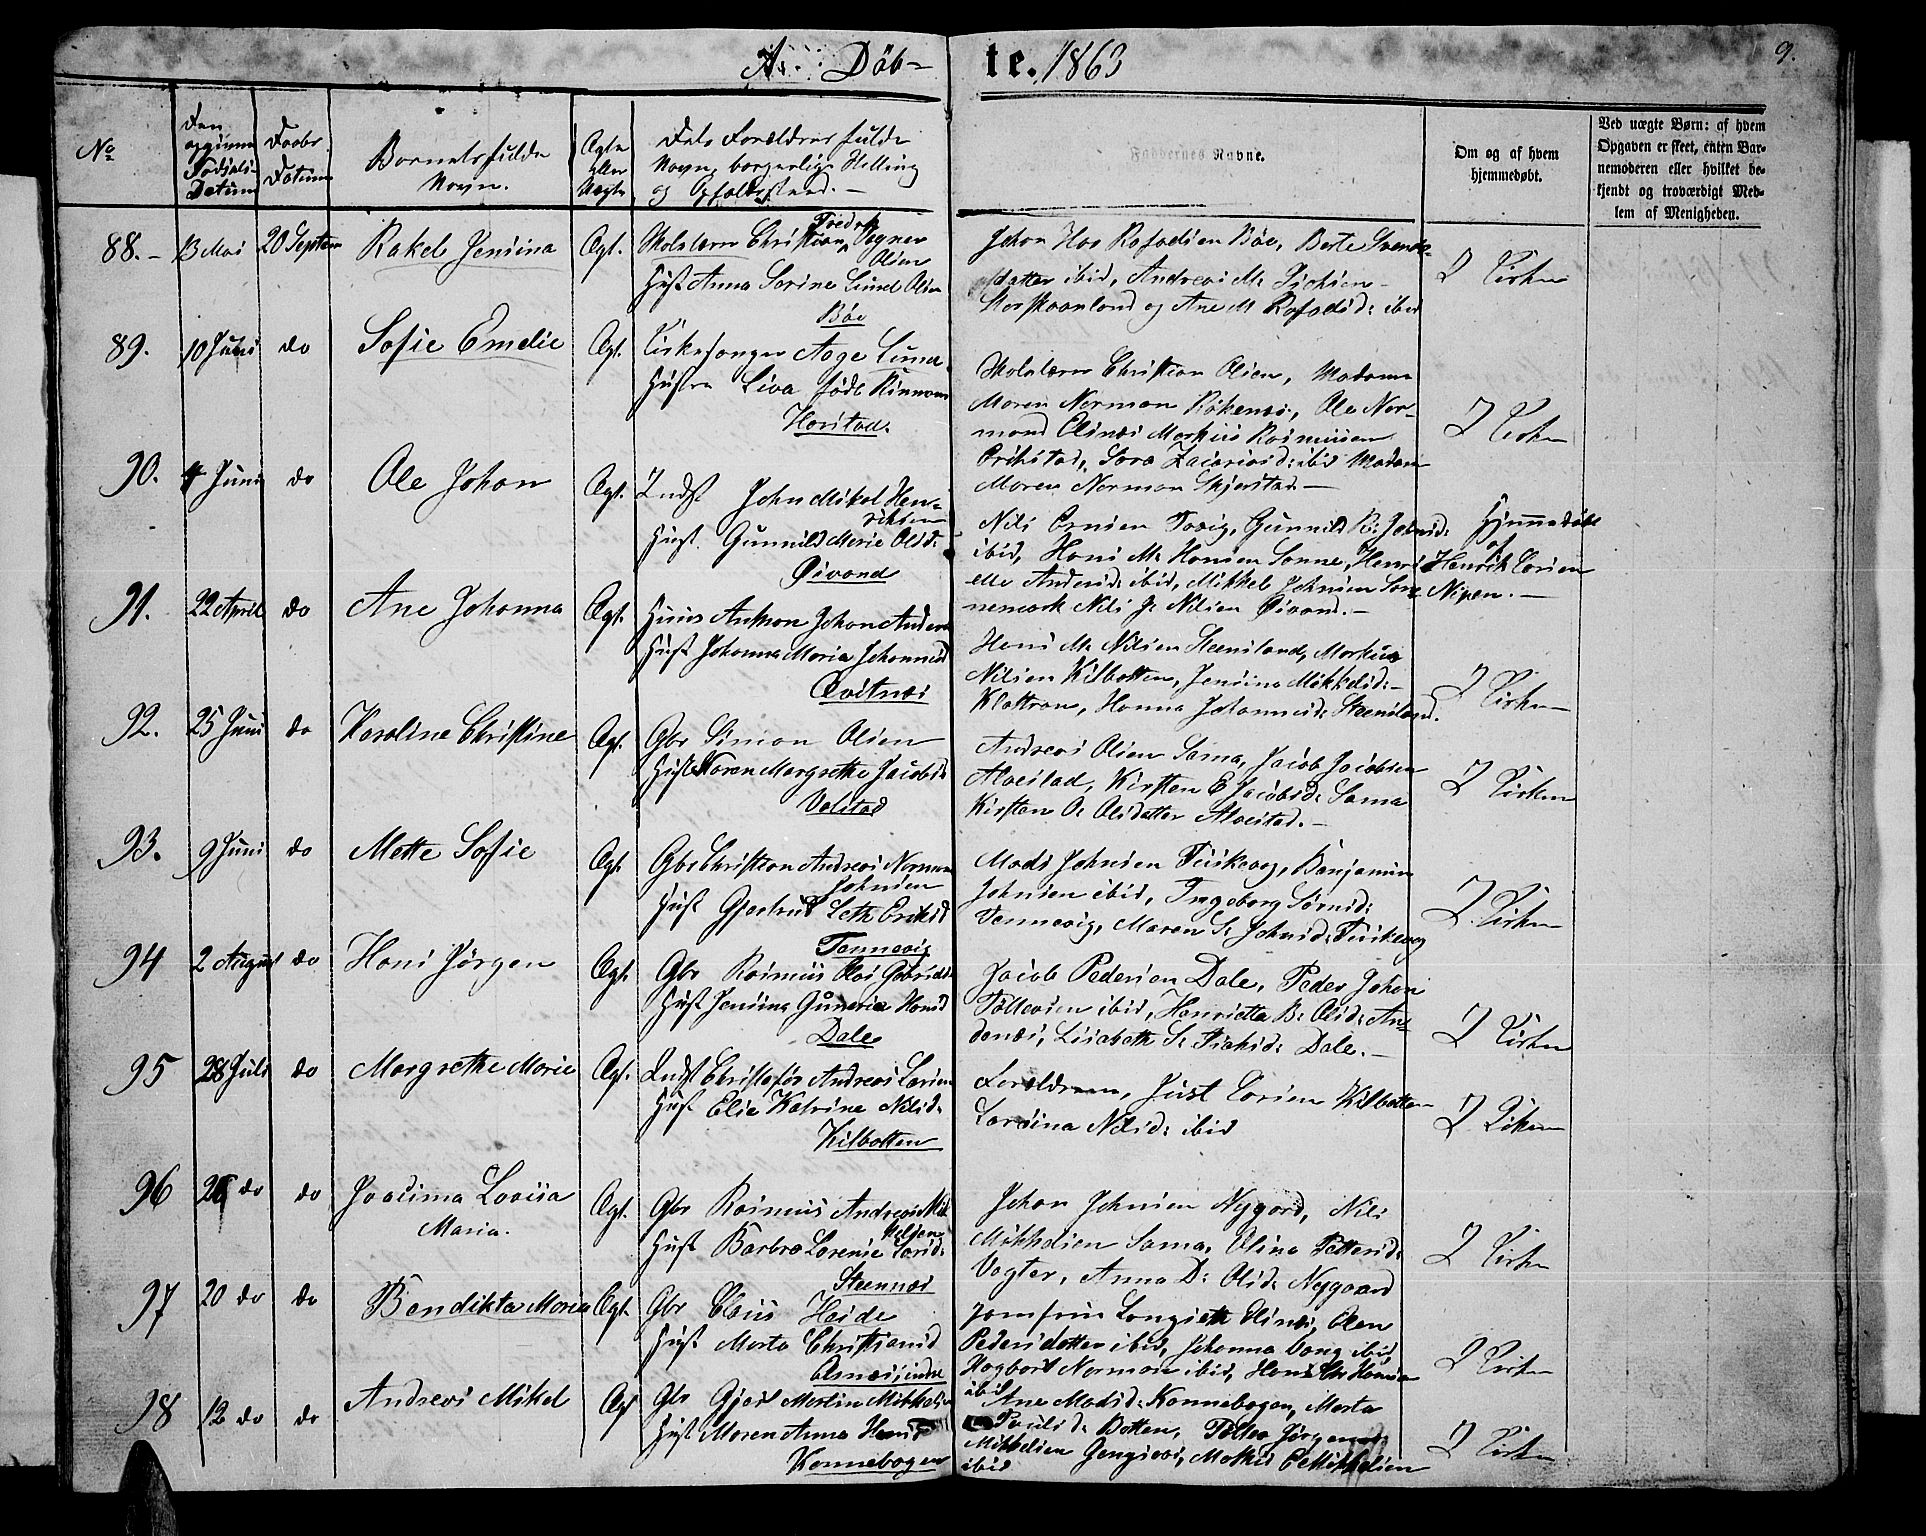 A. Döb- te. 1863
9.
No
Den opgivne Fødsels-Datum
Daabs Datum
Barnets fulde Navn.
Ægte eller Uægte
Dets Forældres fulde Navn, borgerlige Stilling og Opholdssted.
Faddernes Navne.
Om og af hvem hjemmedøbt.
Ved uægte Børn: af hvem
Opgaven er skeet, enten Bar-
nemoderen eller hvilket be-
kjendt og troværdigt Med-
lem af Menigheden.
88. 13 Mai 20 Septem Rakel Jensina Ægt. Skolelærer Christian Fredrik Wogner Olsen
Hust Anna Sorine Lund Olsen
Böe
Johan Has Rafaelsen Böe, Berte Svends-
datter ibid, Andreas M.
og Ane M Rafaelsd: ibid
I Kirken
89. 10 Juni do Sofie Emelie Ægt. Kirkesanger Aage Lund
Hustru Liva født
Harstad.
Skolelærer Christian Olsen, Madame
Maren Norman Rökenæs, Ole Nor-
mand Elsnæs Markus Rasmussen
Erikstad, Sara Zacariasd: ibid Madam
Maren Norman Skjerstad.
I Kirken
90. 4 Juni do Ole Johan Ægt. Indst John Mikal Hen-
riksen
Hust. Gunnild Marie Olsd:
Öivand
Nils Tovig, Gunnild R: Johnsd:
ibid, Hans M: Hansen Sonne, Henri-
ette Andersd: ibid, Mikkel Johnsen Son-
nemark Nils J. Nilsen Öivand.
Hjemmedöbt
af
Henrik Larsen
Nipen.
91. 22 April do Ane Johanna Ægt. Huus Anthon Johan Anders
Hust Johanna Maria Johannesd
Qvitnæs
Hans M. Nilsen Steensland, Markus
Nilsen Kilbotten, Jensina Mikkelsd:
Klattran, Hanna Johannesd: Steensland.
I Kirken
92. 25 Juni do Karoline Christine Ægt. Gbr Simon Olsen
Hust Maren Margrethe Jacobsd:
Volstad
Andreas Olsen Sama, Jacob Jacobsen
Alvestad, Kirsten E Jacobsd: Sama
Kirsten O: Olsdatter Alvestad.
I Kirken
93. 9 Juni do Mette Sofie Ægt. Gbr Christian Andreas Norman
Johnsen
Hust Gjertrud Leth Eriksd
Tennevig
Mads Johnsen Fiskevog, Benjamin
Johnsen ibid, Ingeborg Sörensd:
Tennevig, Maren S: Johnsd: Fiskevog
I Kirken
94 2 August do Hans Jørgen Ægt. Gbr Rasmus Elias Gabrielsen
Hust Jensina Gunneria Hansd
Dale
Jacob Pedersen Dale, Peder Johan
Tollevsen ibid, Henrietta B: Olsd: An-
denæs, Lisabeth S: Isaksd: Dale.
I Kirken
95 28 Juli do Margrethe Marie Ægt. Indst Christofer Andreas Larsen
Hust Elie Katrine Nilsd:
Kilbotten
Forældrene, Just Larsen Kilbotten
Larsina Nilsd: ibid
I Kirken
96 26 do do Joacima Lovisa
Maria. Ægt. Gbr Rasmus Andreas Mik-
kelsen
Hust Barbro Lorense Larsd:
Steennæs
Johan Johnsen Nygard, Nils
Mikkelsen Sama, Elina Pettersd:
Vogter, Anna D: Olsd: Nygaard
I Kirken
97 20 do do Bendikta Maria Ægt. Gbr Claus Heide
Hust Marta Christiansd
Elsnæs, indre
Jomfru Elsnæs, Elen
Pedersdatter ibid, Johanna Vang ibid
Hagbart Norman ibid, Hans
ibid
I Kirken
98 12 do do Andreas Mikal Ægt Gbr Gjert Martin Mikkelsen
Hust Maren Anna Hansd
Konnebogen
Ane Madsd: Konnebogen, Marta
Paulsd: Botten, Peter Jörgen
Mikkelsen Gengsaas, Mathis E Mikkelsen
ibid
I Kirken